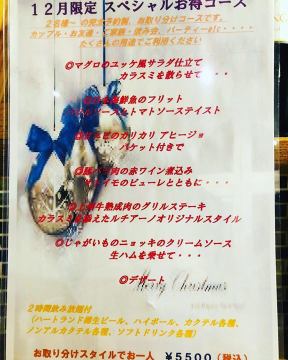 12月限定 スペシャルお得コース
2名様～の完全予約制、お取り分けコースです。
カップル・お友達・ご家族・読み会、パーティーetc・・・・
たくさんの用途でご利用ください
◎マグロのユッケ風サラダ仕立て
カラスミを散らせて・・・
海鮮魚のフリット
ソース&トマトソーステイスト
のカリカリ アヒージョ
バケット付きで
肉の赤ワイン煮込み
イモのピューレとともに・・・
牛熟成肉のグリルステーキ
カラスミを添えたルチアーノオリジナルスタイル
◎じゃがいものニョッキのクリームソース
生ハムを乗せて・・・
◎デザート
Merry Christmas
2時間飲み放題付
(ハートランド樽生ビール、ハイボール、カクテル各種、
ノンアルカクテル各種、ソフトドリンク各種)
お取り分けスタイルでお一人 ¥5500(税込)